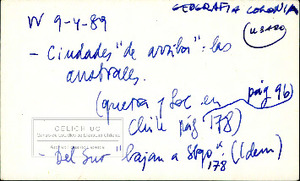 GEOGRAFIA COLONIA
W 9-4-89
(USADO)
- Ciudades "de arriba": las
australes.
(guerra y Soc en
Chile pág 178)
pág 96)
CELICH UC
- Del Sur "bajan a Stgo"
178 (Idem)